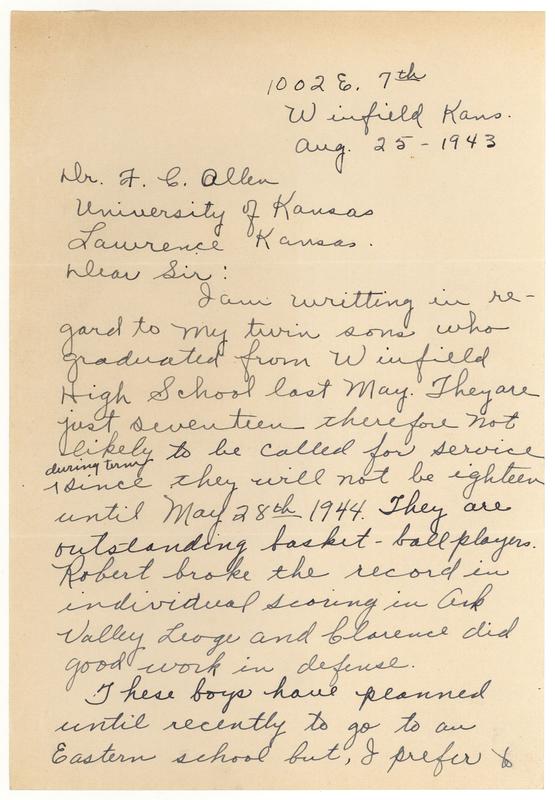 1002 E. 7th
Winfield Kans.
Aug. 25 - 1943
Dr. F. C. Allen
University of Kansas
Lawrence Kansas.
Dear Sir:
I am writting in re-
gard to my twin sons who
graduated from Winfield
High School last May. They are
just seventeen therefore not
likely to be called for service
during term
since they will not be eighteen
until May 28th 1944. They are
outstanding basket-ball players.
Robert broke the record in
individual scoring in Ark
Valley Leage and Clarence did
good work in defense.
These boys have planned
until recently to go to an
Eastern school but, I prefer to